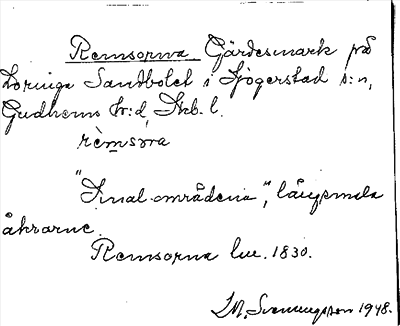 Remsorna Gärdesmark på
Sandbolet i Sjögerstad s:n,
Gudhems h:d, Skb. l.
rèmsora
"Smal-områdena", långsmala
åkrarne.
Remsorna lm. 1830.
Svenningsson 1948.